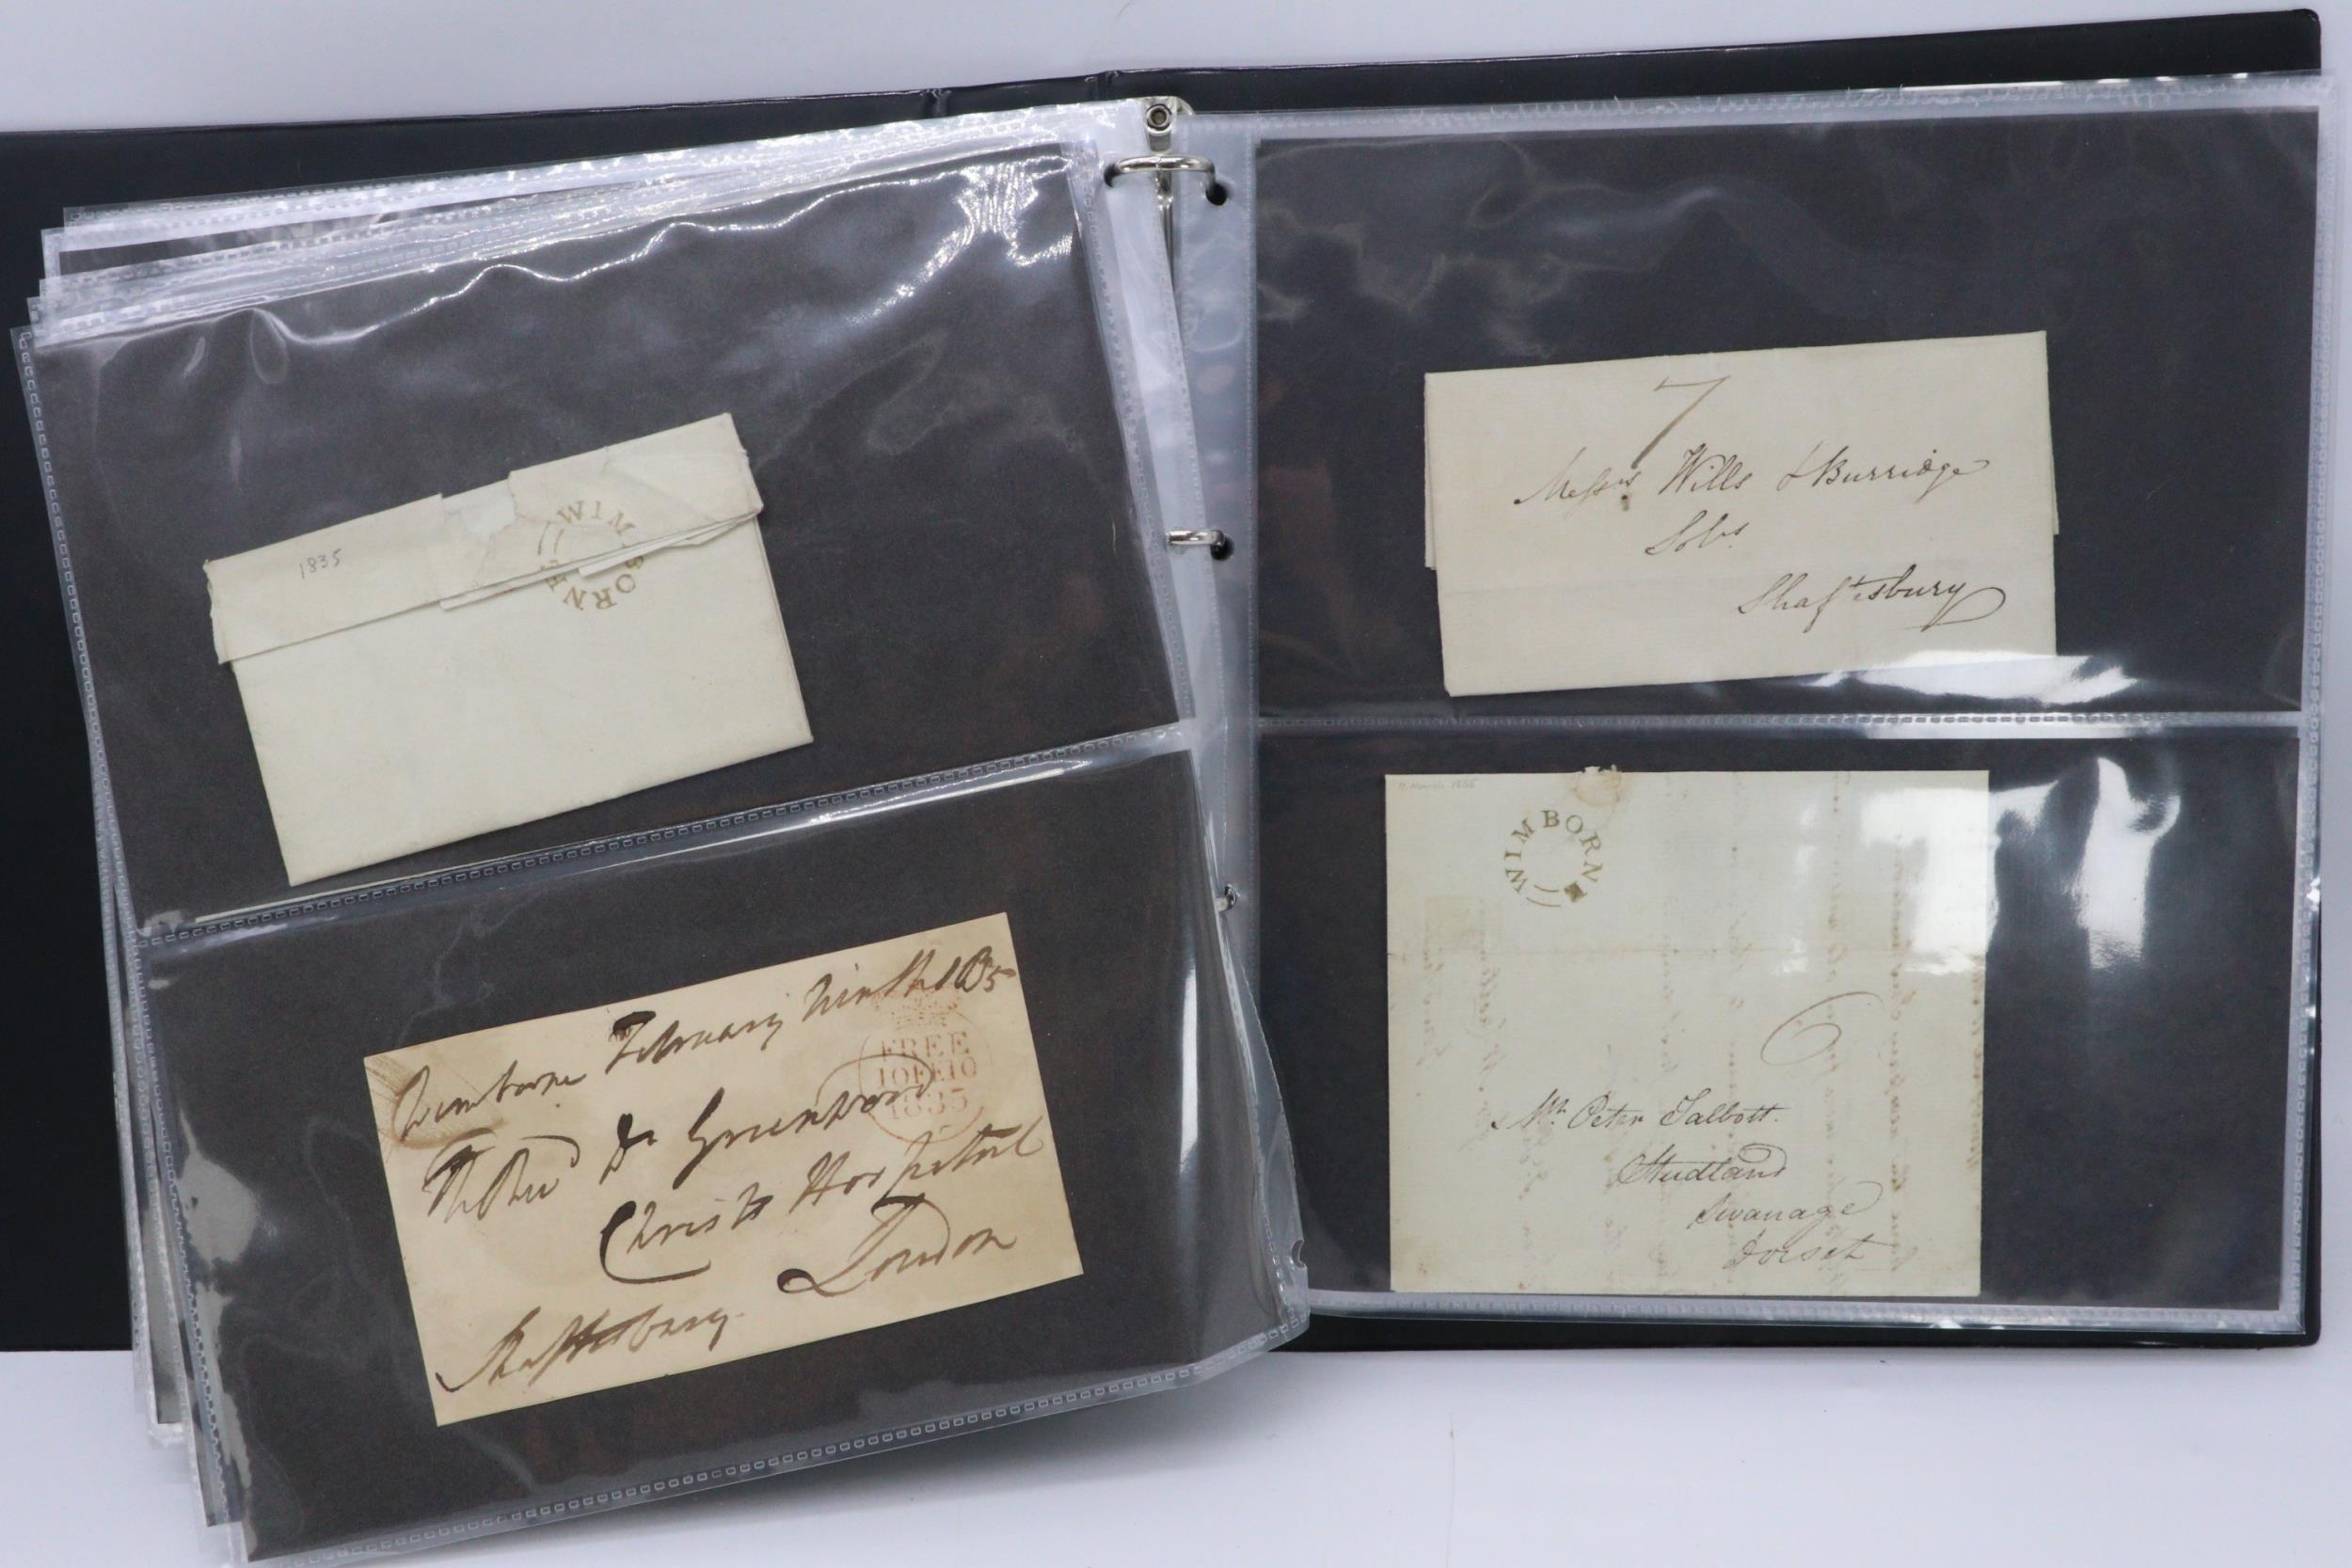 1835
WIMBORNE
Wimborne February Ninth 1835
FREE
10FE10
1835
The Revd Dr Greenwood
Christs Hospital
London
Shaftesbury
7
Messrs Wills & Burridge
Solrs
Shaftesbury
March 1835
WIMBORNE
6
Mr. Peter Talbott.
Studland
Swanage
Dorset